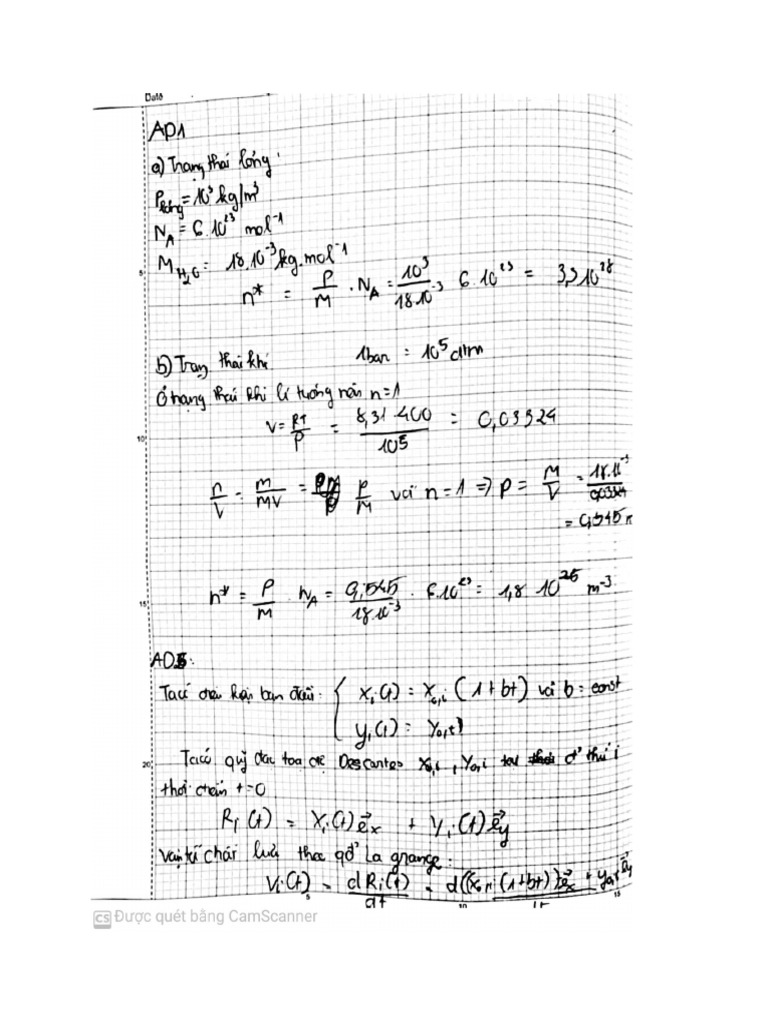 Date
AD1
a) Trạng thái lỏng:
ρ lỏng = 10³ kg/m³
N_A = 6.10²³ mol⁻¹
M_H₂O = 18.10⁻³ kg.mol⁻¹
5
n* = ρ/M . N_A = 10³/18.10⁻³ 6.10²³ = 3,3 10²⁸
b) Trạng thái khí 1bar = 10⁵ atm
Ở trạng thái khí lí tưởng nên n=1
V = RT/P = 8,31.400/10⁵ = 0,03324
10
n/V = m/MV = ρ/M với n = 1 => ρ = M/V = 18.10⁻³/0,03324
= 0,545
n* = ρ/M . N_A = 0,545/18.10⁻³ . 6.10²³ = 1,8 10²⁵ m⁻³
15
Ta có điều kiện ban đầu: { x_i(t) = x_0,i (1+bt) với b = const
y_i(t) = y_0,i
20
Ta có quỹ đạo tọa độ Descartes x_0,i, y_0,i ở thứ i
thời điểm t=0
R_i(t) = x_i(t) e⃗x + y_i(t) e⃗y
Vận tốc chất lưu theo Lagrange:
V_i(t) = dR_i(t)/dt = d((x_0,i (1+bt)) e⃗x + y_0,i e⃗y
5 10 15
CS Được quét bằng CamScanner